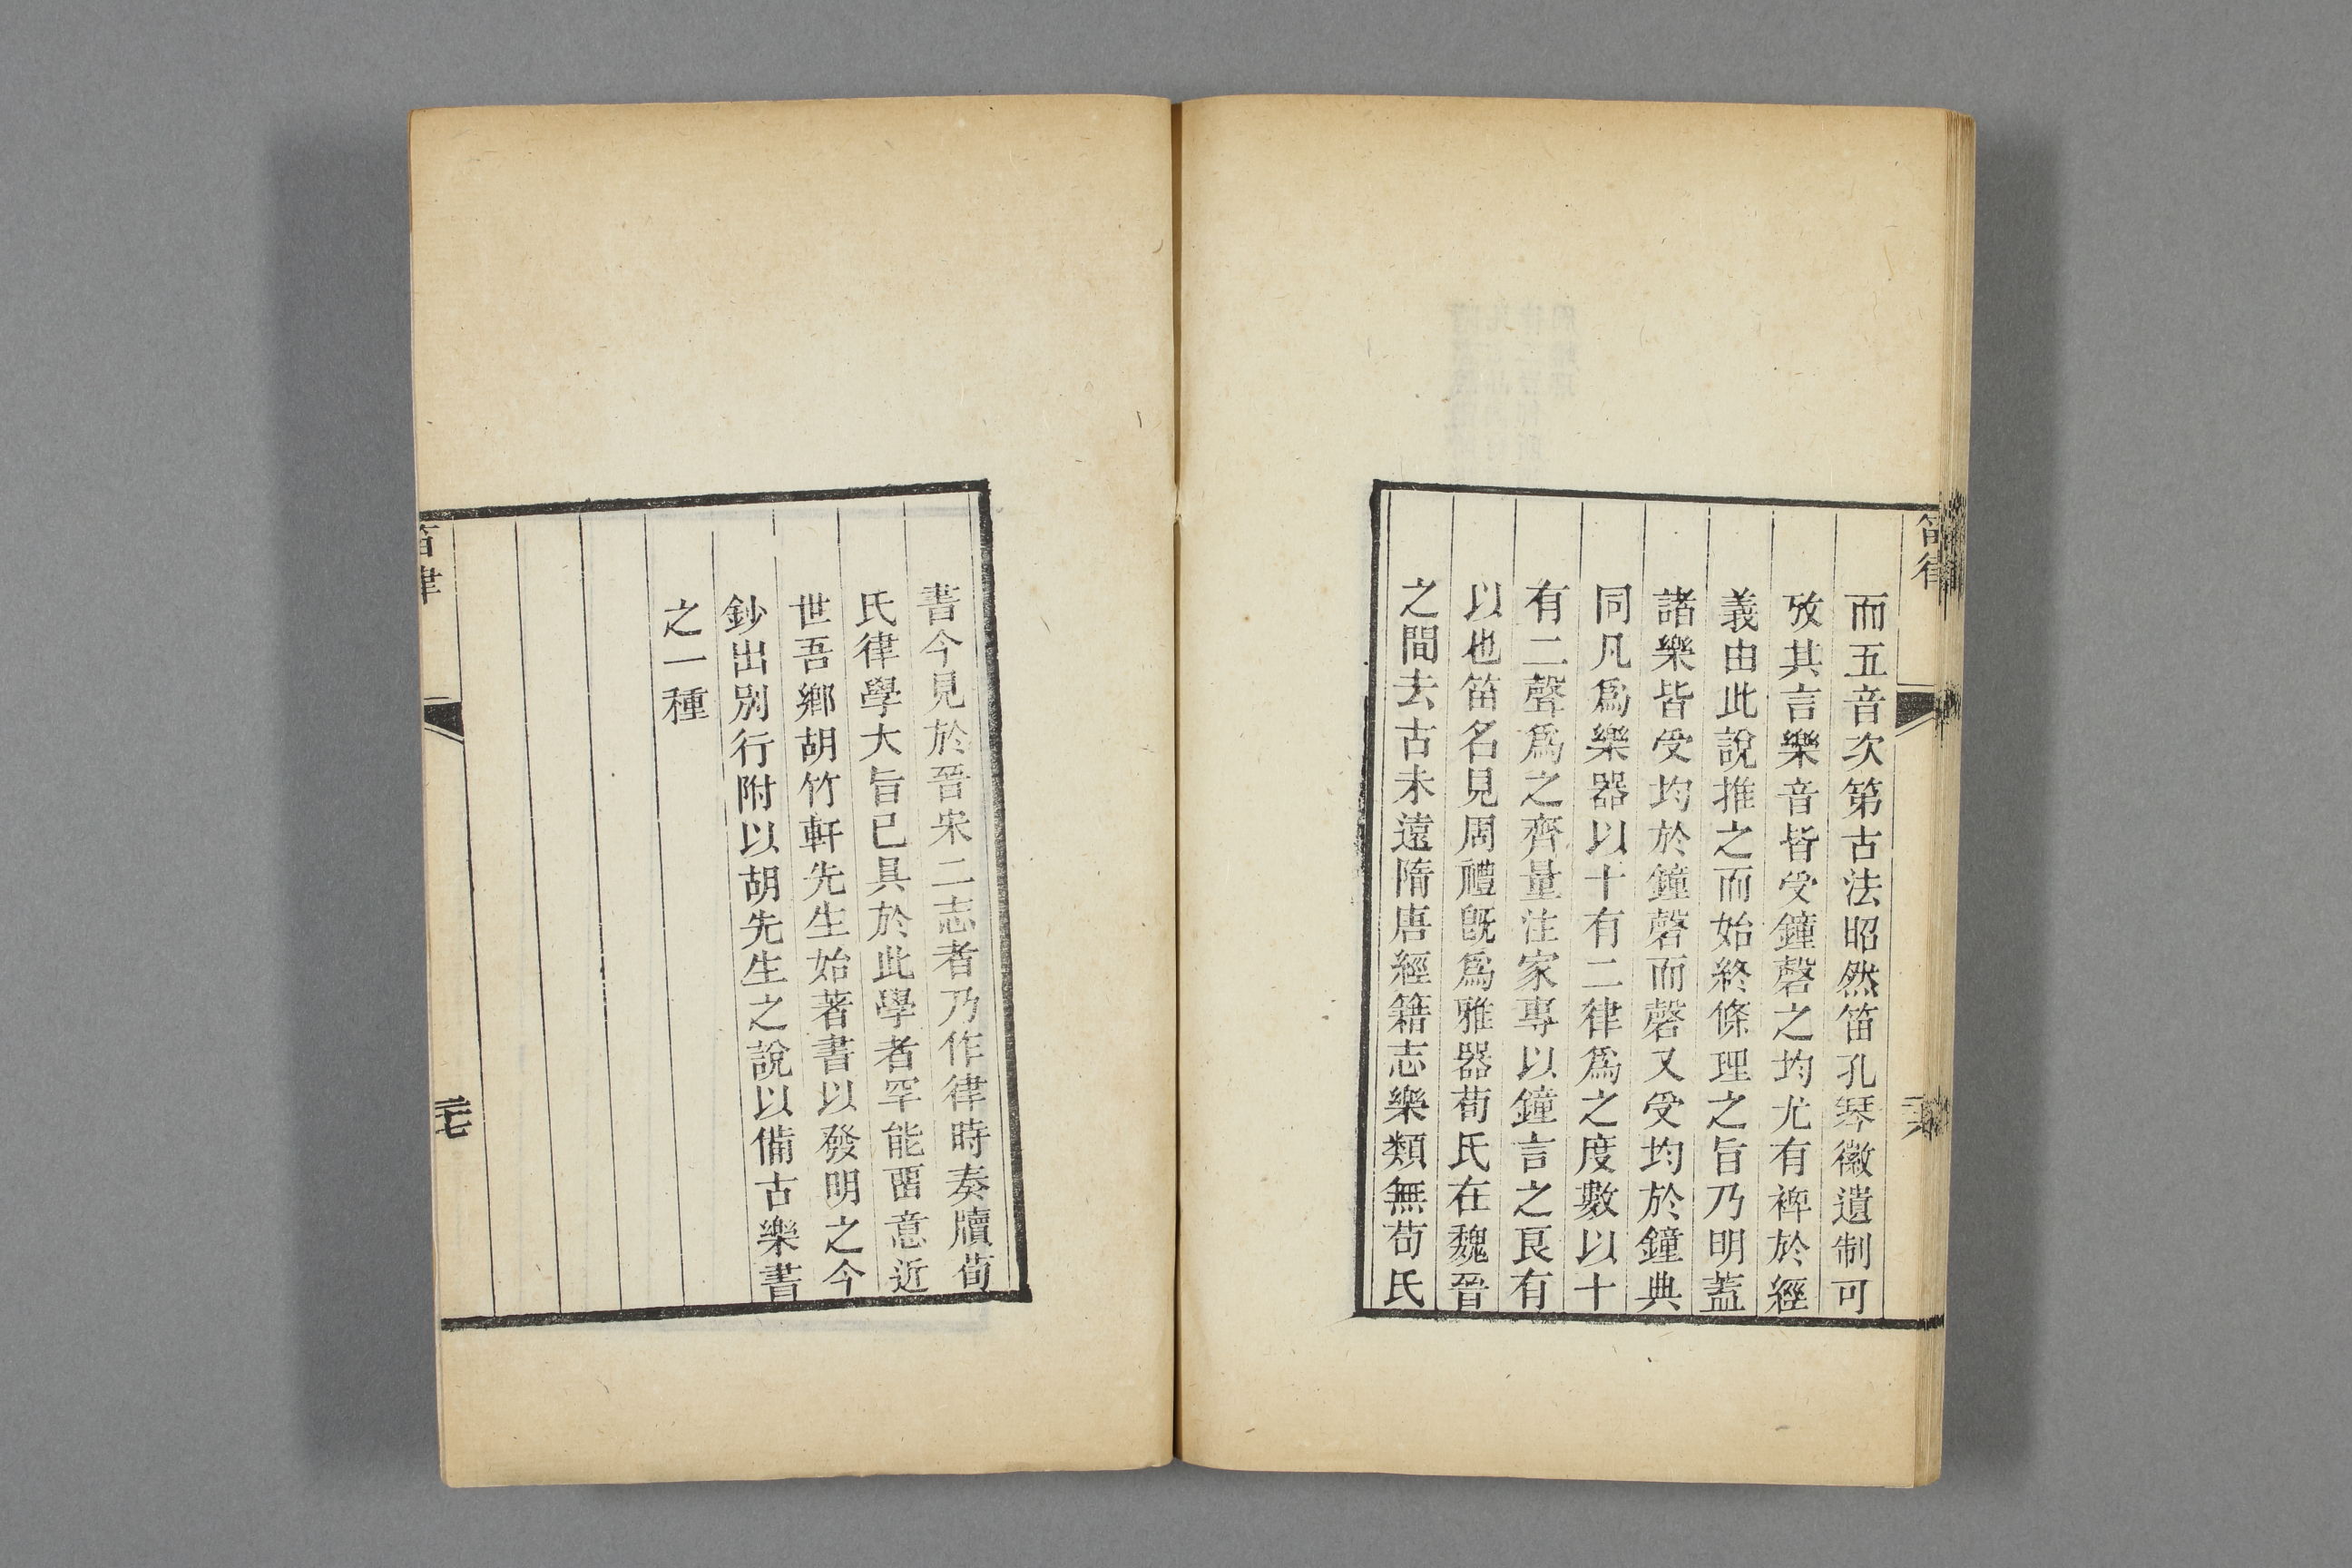 笛律
而五音次第古法昭然笛孔琴徽遺制可
攷其言樂音皆受鐘磬之均尤有裨於經
義由此說推之而始終條理之旨乃明蓋
諸樂皆受均於鐘磬而磬又受均於鐘典
同凡爲樂器以十有二律爲之度數以十
有二聲爲之齊量注家專以鐘言之良有
以也笛名見周禮旣爲雅器荀氏在魏晉
之間去古未遠隋唐經籍志樂類無荀氏
書今見於晉宋二志者乃作律時奏牘荀
氏律學大旨已具於此學者罕能畱意近
世吾鄉胡竹軒先生始著書以發明之今
鈔出別行附以胡先生之說以備古樂書
之一種
笛律
二十七